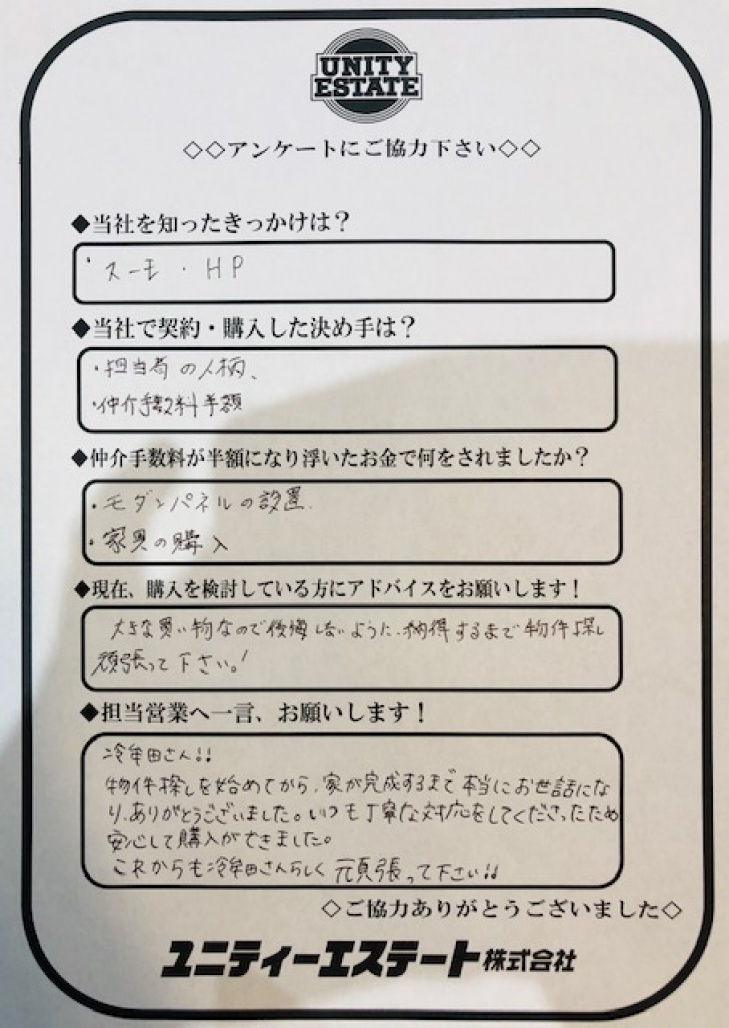 UNITY
ESTATE
◇◇アンケートにご協力下さい◇◇
◆当社を知ったきっかけは？
・スーモ・HP
◆当社で契約・購入した決め手は？
・担当者の人柄、
・仲介手数料半額
◆仲介手数料が半額になり浮いたお金で何をされましたか？
・モダンパネルの設置.
・家具の購入
◆現在、購入を検討している方にアドバイスをお願いします！
大きな買い物なので後悔しないように、納得するまで物件探し
頑張って下さい。！
◆担当営業へ一言、お願いします！
冷牟田さん!!
物件探しを始めてから、家が完成するまで本当にお世話にな
り、ありがとうございました。いつも丁寧な対応をしてくださったため
安心して購入ができました。
これからも冷牟田さんらしく頑張って下さい!!
◇ご協力ありがとうございました◇
ユニティーエステート株式会社